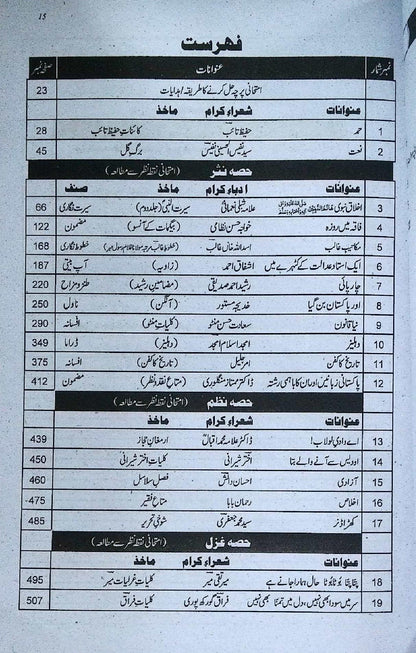 15
فہرست
نمبر شمار عنوانات صفحہ نمبر
امتحانی پرچہ حل کرنے کا طریقہ/ہدایات 23
عنوانات شعرائے کرام ماخذ
1 حمد حفیظ تائب کلیات حفیظ تائب 28
2 نعت سید نفیس الحسینی نفیس برگ گل 45
حصہ نثر (امتحانی نقطۂ نظر سے مطالعہ)
عنوانات ادبائے کرام ماخذ صنف
3 اخلاق نبوی علامہ شبلی نعمانی سیرت النبی (جلد دوم) سیرت نگاری 66
4 فاقہ میں روزہ خواجہ حسن نظامی (بیگمات کے آنسو) مضمون 122
5 مکاتیب غالب اسد اللہ خاں غالب (خطوط غالب مرتبہ مولانا غلام رسول مہر) خطوط نگاری 168
6 ایک استاد عدالت کے کٹہرے میں اشفاق احمد (زاویہ) آپ بیتی 187
7 چارپائی رشید احمد صدیقی (مضامین رشید) طنز و مزاح 220
8 اور پاکستان بن گیا خدیجہ مستور (آنگن) ناول 250
9 نیا قانون سعادت حسن منٹو (کلیات منٹو) افسانہ 290
10 دہلیز امجد اسلام امجد (دہلیز) ڈراما 349
11 تاریخ کا کفن امر جلیل (تاریخ کا کفن) افسانہ 375
12 پاکستانی زبانیں اور ان کا باہمی رشتہ ڈاکٹر ممتاز منگلوری (متاع نقد و نظر) مضمون 412
حصہ نظم (امتحانی نقطۂ نظر سے مطالعہ)
عنوانات شعرائے کرام ماخذ
13 اے وادی لولاب! ڈاکٹر علامہ محمد اقبال ارمغان حجاز 439
14 او دیس سے آنے والے بتا اختر شیرانی کلیات اختر شیرانی 450
15 آزادی احسان دانش فصل سلاسل 460
16 اخلاص رحمان بابا متاع فقیر 475
17 کھڑا ڈنر سید محمد جعفری شوخیٔ تحریر 485
حصہ غزل (امتحانی نقطۂ نظر سے مطالعہ)
عنوانات شعرائے کرام ماخذ
18 پتا پتا بوٹا بوٹا حال ہمارا جانے ہے میر تقی میر کلیات غزلیات میر 495
19 سر میں سودا بھی نہیں، دل میں تمنا بھی نہیں فراق گورکھ پوری کلیات فراق 507